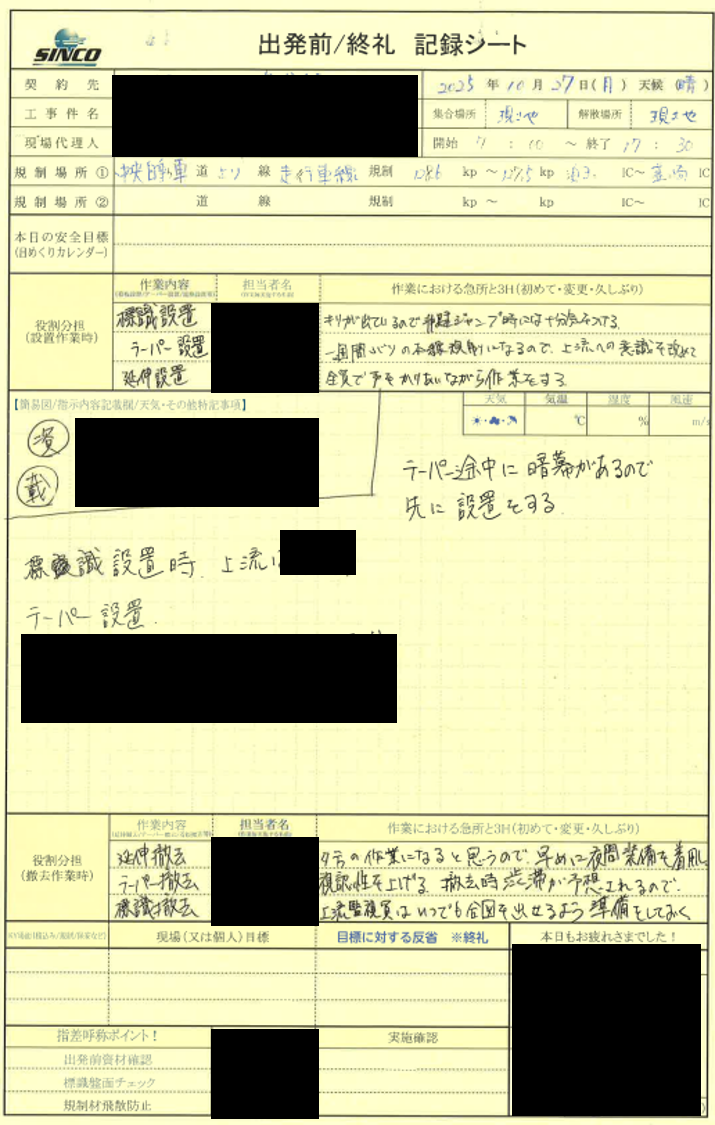 SINCO
出発前/終礼 記録シート
契約先
2025年10月27日(月) 天候(晴)
工事件名
集合場所 現さや 解散場所 現さや
現場代理人
開始 7:10 ～ 終了 17:30
規制場所① 道 より 線 走行車線 規制 128.6 kp ～ 127.5 kp IC～ 韮崎 IC
規制場所② 道 線 規制 kp ～ kp IC～ IC
本日の安全目標
(日めくりカレンダー)
役割分担
(設置作業時)
作業内容 担当者名 作業における急所と3H(初めて・変更・久しぶり)
標識設置 キリが出ているので ジャンプ時には十分気をつける。
テーパー設置 一週間ぶりの本線規制になるので、上流への意識を改めて
延伸設置 全員で声をかけあいながら作業をする。
【簡易図/指示内容記載欄/天気・その他特記事項】
天気 気温 湿度 風速
℃ % m/s
載
テーパー途中に暗幕があるので
先に設置をする。
標識設置時、上流
テーパー設置.
役割分担
(撤去作業時)
作業内容 担当者名 作業における急所と3H(初めて・変更・久しぶり)
延伸撤去 夕方の作業になると思うので、早めに夜間装備を着用し
テーパー撤去 視認性を上げる。撤去時渋滞が予想されるので、
標識撤去 上流監視員はいつでも合図を出せるよう準備をしておく
現場(又は個人)目標 目標に対する反省 ※終礼 本日もお疲れさまでした！
指差呼称ポイント！ 実施確認
出発前資材確認
標識盤面チェック
規制材飛散防止